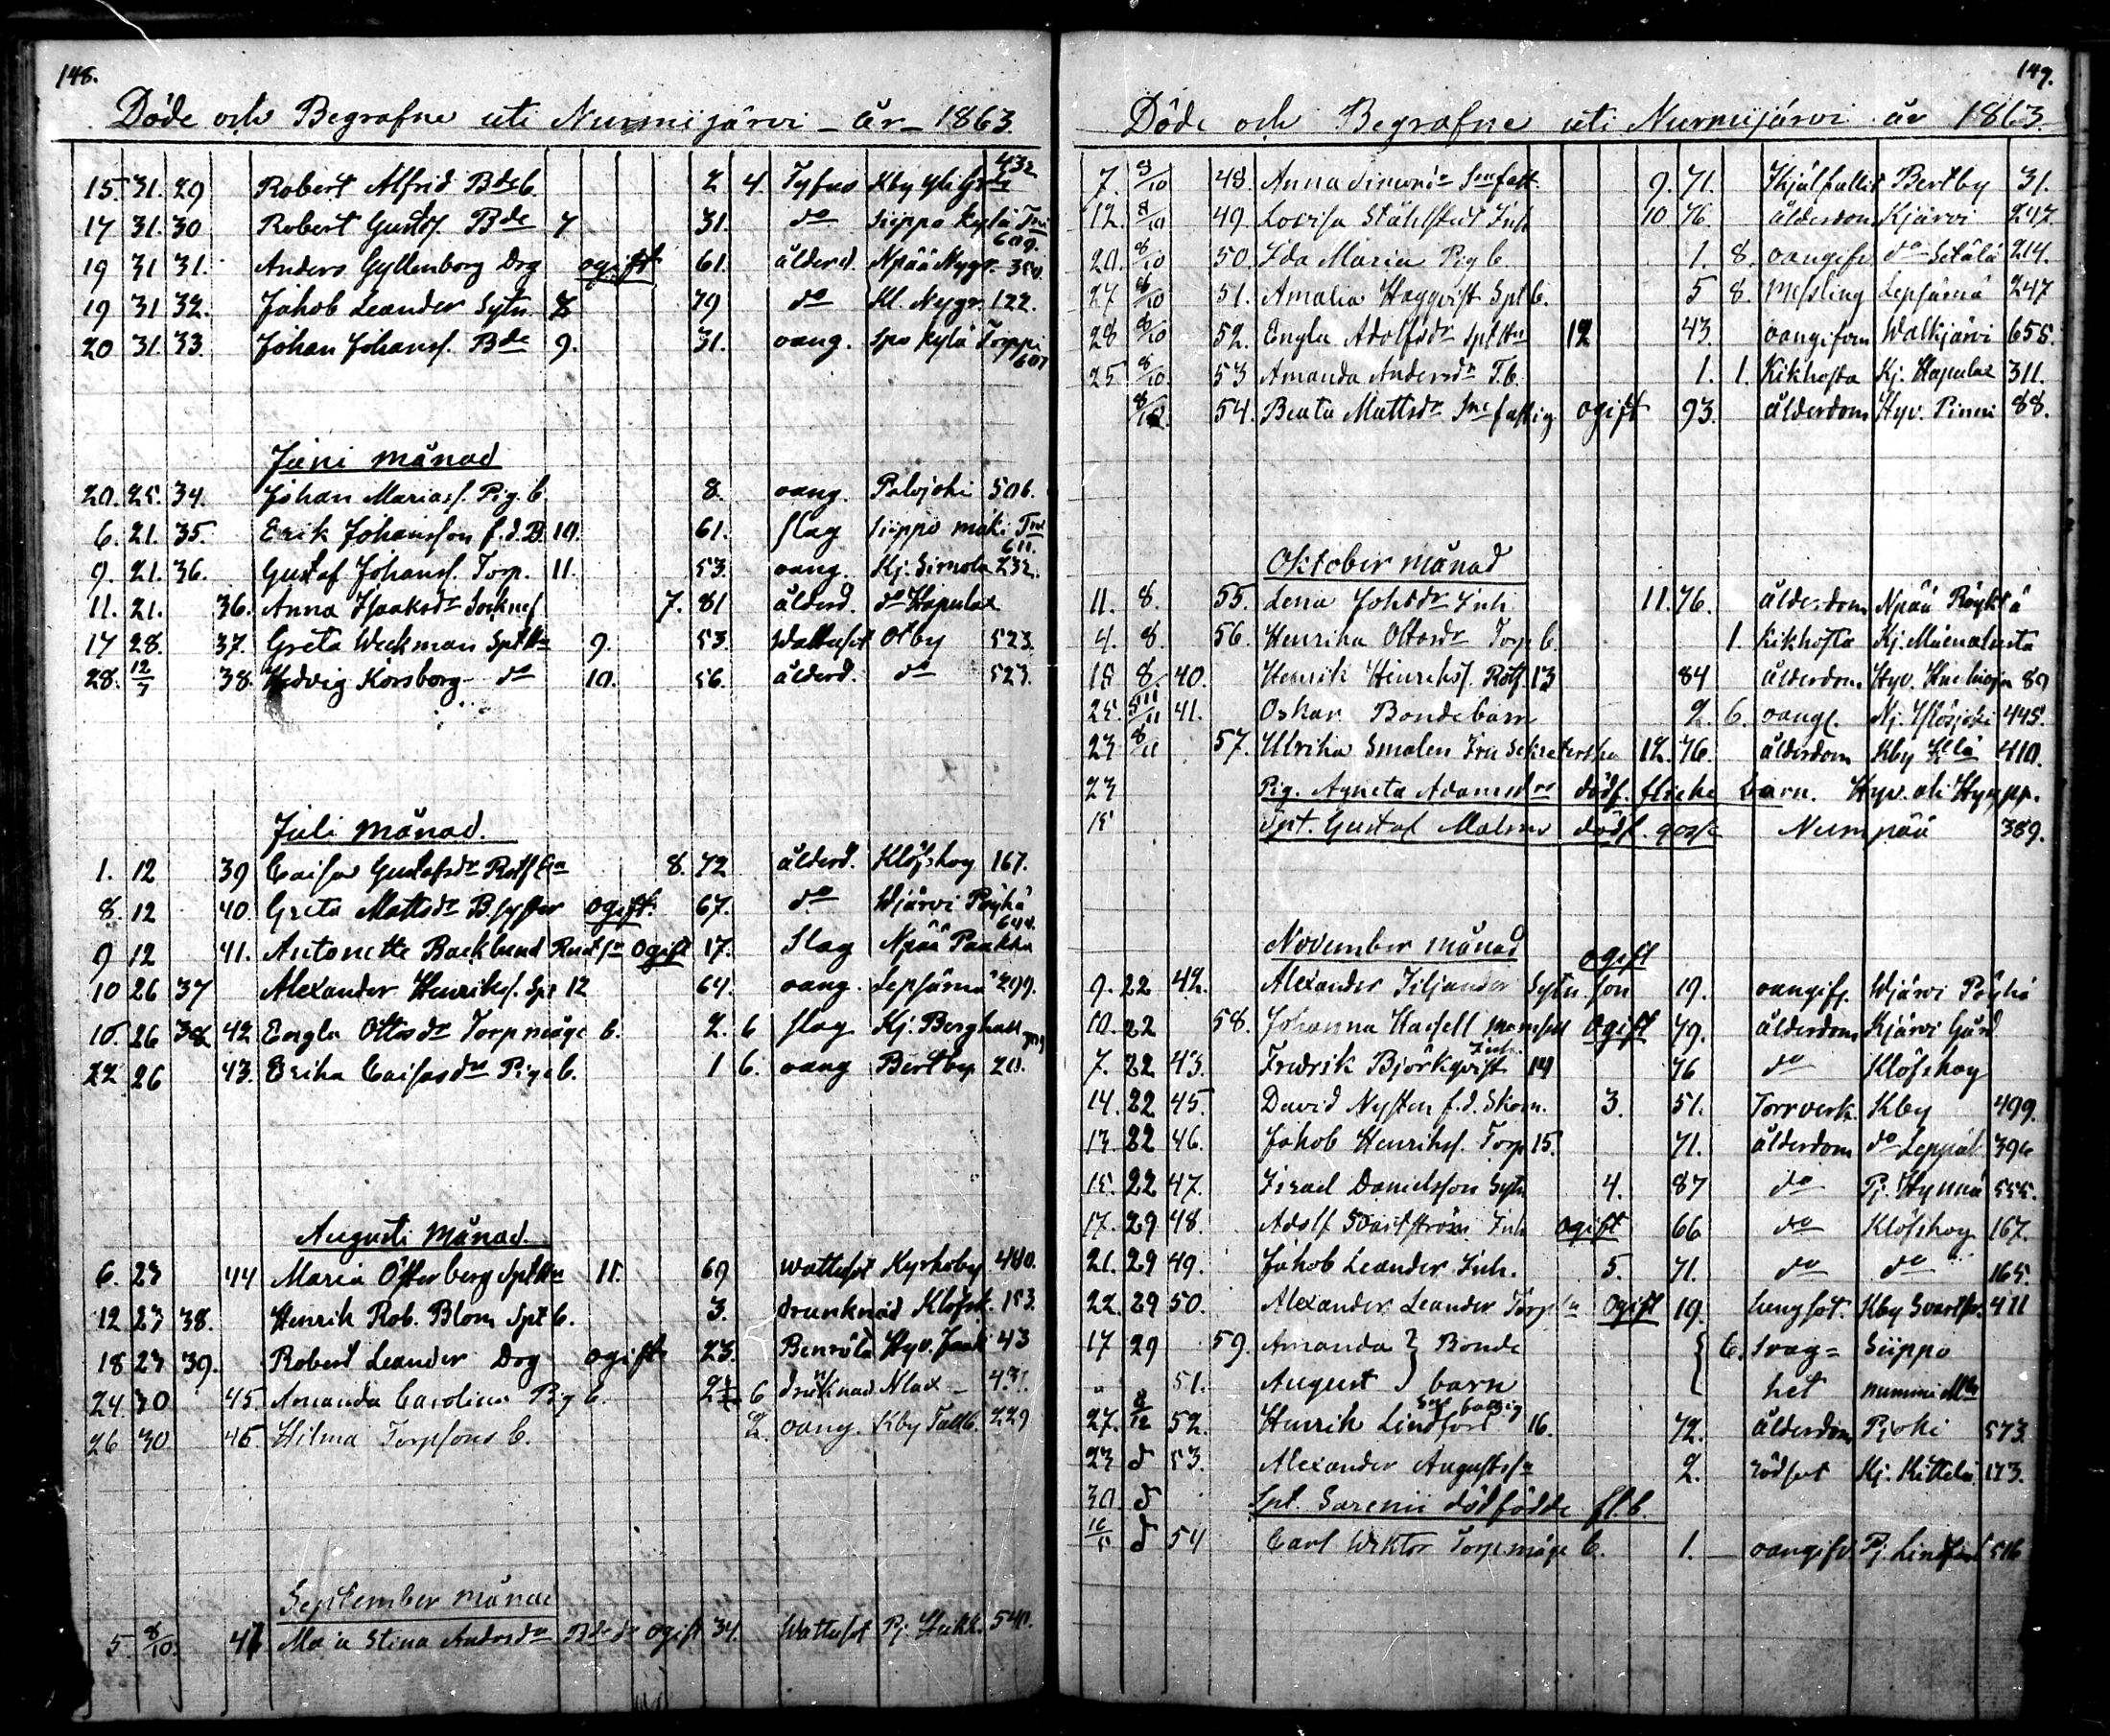 148.
Döde och Begrafne uti Nurmijärvi - år - 1863.
15. 31. 29 Robert Alfrid Bde b. 2 4. Tyfus Kby 432
17 31. 30 Robert Gustaf. Bde 7 31. do Siippo kylä 609.
19 31 31. Anders Gyllenborg Drg ogift 61. ålderd. Npää Nygr. 350.
19 31 32. Jakob Leander Sytn. 8 79 do Kl. Nygr. 122.
20 31. 33. Johan Johans. Bde 9. 31. oang. Spo kylä Torppi 607
Juni månad
20. 25. 34. Johan Marias. Pig. b. 8. oang. Palojoki 506.
6. 21. 35. Erik Johansson f.d.B. 10. 61. slag Siippo mäki 611.
9. 21. 36. Gustaf Johans. Torp. 11. 53. oang. Kj. Sirnola 232.
11. 21. 36. Anna Isaksdr Sockne 7. 81 ålderd. do Hapulax
17 28. 37. Greta Weckman Splt 9. 53. Wattusot Otby 523.
28. 12/7 38. Hedvig Korsborg do 10. 56. ålderd. do 523.
Juli månad.
1. 12 39 Caisa Gustafsdr 8. 72 ålderd. Klöfskog 167.
8. 12 40. Greta Mattsdr B. syster ogift. 67. do Wjärvi Pöyhä 644.
9 12 41. Antonette Backlund ogift 17. Slag Npää
10 26 37 Alexander Henriks. 12 64. oang. Lepsämä 299.
10. 26 38. 42 Engla Ottosdr Torpmåge b. 2. 6 slag Kj. Berghall
22 26 43. Erika Caisasdr Pige b. 1 6. oang Bertby 20.
Augusti Månad.
6. 23 44 Maria Österberg 11. 69 wattusot Kyrkoby 440.
12 23 38. Henrik Rob. Blom Splt b. 3. drunknad Klöfsk. 153.
18 23 39. Robert Leander Drg ogift 23. Benröta Hyv. 43
24 30 45. Amanda Carolina Pig b. 2 6 drunknad 431.
26 30 46. Hilma Torpsons b. 2. oang. Kby Tallb. 229
September månad
5. 8/10. 47 Maja Stina Andersdr ogift 34. Wattusot Pj. 540.
149.
Döde och Begrafne uti Nurmijärvi år 1863.
7. 8/10 48. Anna Simonsdr 9. 71. Ihjälfallit Bertby 31.
12. 8/10 49. Lovisa Ståhlstedt Inh 10. 76. ålderdom Kjärvi 247.
20. 8/10 50. Ida Maria Pig b. 1. 8. oangifv. do Setälä 214.
27 8/10 51. Amalia Hagqvist Splt b. 5 8. Messling Lepsämä 247
28 8/10 52. Engla Adolfsdr 12 43. oangifven Walkjärvi 655.
25 8/10. 53 Amanda Andersdr T.b. 1. 1. Kikhosta Kj. Hapulax 311.
8/10. 54. Beata Mattsdr ogift 93. ålderdom Hyv. 88.
Oktober månad
11. 8. 55. Lena Johsdr Inh 11. 76. ålderdom Npää Röykkä
4. 8. 56. Henrika Ottosdr Torp b. 1. Kikhosta Kj.
18 8 40. Henrik Henriks. 13 84 ålderdom Hyv. 89
25. 8/11 41. Oskar Bondebarn 2. 6. oangf. 445.
23 8/11 57. Ulrika Smalen Fru Sekreterska 12. 76. ålderdom Kby 410.
23 Pig. Agneta Adamsdrs dödf. flicke barn. Hyv.
15 Spt. Gustaf Malms dödf. gosse Numpää 389.
November månad
ogift
9. 22 42. Alexander Siljander Sytn. son 19. oangifv. Wjärvi Pöyhä
10. 22 58. Johanna Hasell mamsell ogift 79. ålderdom Kjärvi Gård
7. 22 43. Fredrik Björkqvist Inh. 14 76 do Klöfskog
14. 22 45. David Nysten f.d. Skom. 3. 51. Torrverk Kby 499.
13 22 46. Jakob Henriks. Torp 15. 71. ålderdom do
15. 22 47. Israel Danielsson Sytn 4. 87 do Pj. Hynnä 555.
17. 29 48. Adolf Inh ogift 66 do Klöfskog 167.
21. 29 49. Jakob Leander Inh. 5. 71. do do 165
22. 29 50. Alexander Leander Torp ogift 19. lungsot. Kby 411
17 29 59. Amanda } Bonde { 6. svag= Siippo
" 51. August } barn { het
27. 8/12 52. Henrik Lindfors 16. 72. ålderdom Pjoki 573.
23 d 53. Alexander Augusts 2. rödsot Kj. Kittelä 173.
30 d Spl. Sarenii dödfödde fl.b.
16/11 d 54 Carl Wiktor Torpmåge b. 1. oangifv. Pj. 516